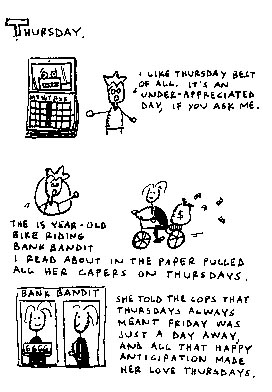 THURSDAY.
I LIKE THURSDAY BEST
OF ALL. IT'S AN
UNDER-APPRECIATED
DAY, IF YOU ASK ME.
THE 15 YEAR-OLD
BIKE RIDING
BANK BANDIT
I READ ABOUT IN THE PAPER PULLED
ALL HER CAPERS ON THURSDAYS.
BANK BANDIT
SHE TOLD THE COPS THAT
THURSDAYS ALWAYS
MEANT FRIDAY WAS
JUST A DAY AWAY,
AND ALL THAT HAPPY
ANTICIPATION MADE
HER LOVE THURSDAYS.
$